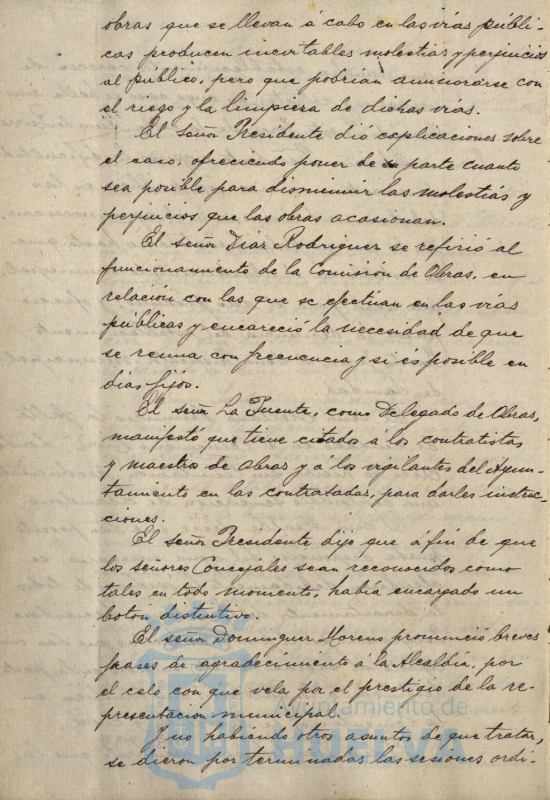 obras que se llevan á cabo en las vías públi-
cas producen inevitables molestias y perjuicios
al público, pero que podrían aminorarse con
el riego y la limpieza de dichas vías.
El señor Presidente dió explicaciones sobre
el caso, ofreciendo poner de su parte cuanto
sea posible para disminuir las molestias y
perjuicios que las obras acasionan.
El señor Díaz Rodriguez se refirió al
funcionamiento de la Comisión de Obras, en
relación con las que se efectúan en las vías
públicas y encareció la necesidad de que
se reuna con frecuencia y si es posible en
dias fijos.
El señor La Fuente, como Delegado de Obras,
manifestó que tiene citados a los contratistas
y maestros de obras y á los vigilantes del Ayun-
tamiento en las contratadas, para darles instruc-
ciones.
El señor Presidente dijo que a fin de que
los señores Concejales sean reconocidos como
tales en todo momento, había encargado un
botón distintivo.
El señor Dominguez Moreno pronunció breves
frases de agradecimiento á la Alcaldía, por
el celo con que vela por el prestigio de la re-
presentacion municipal.
Y no habiendo otros asuntos de que tratar,
se dieron por terminadas las sesiones ordi-
Ayuntamiento de
HUELVA